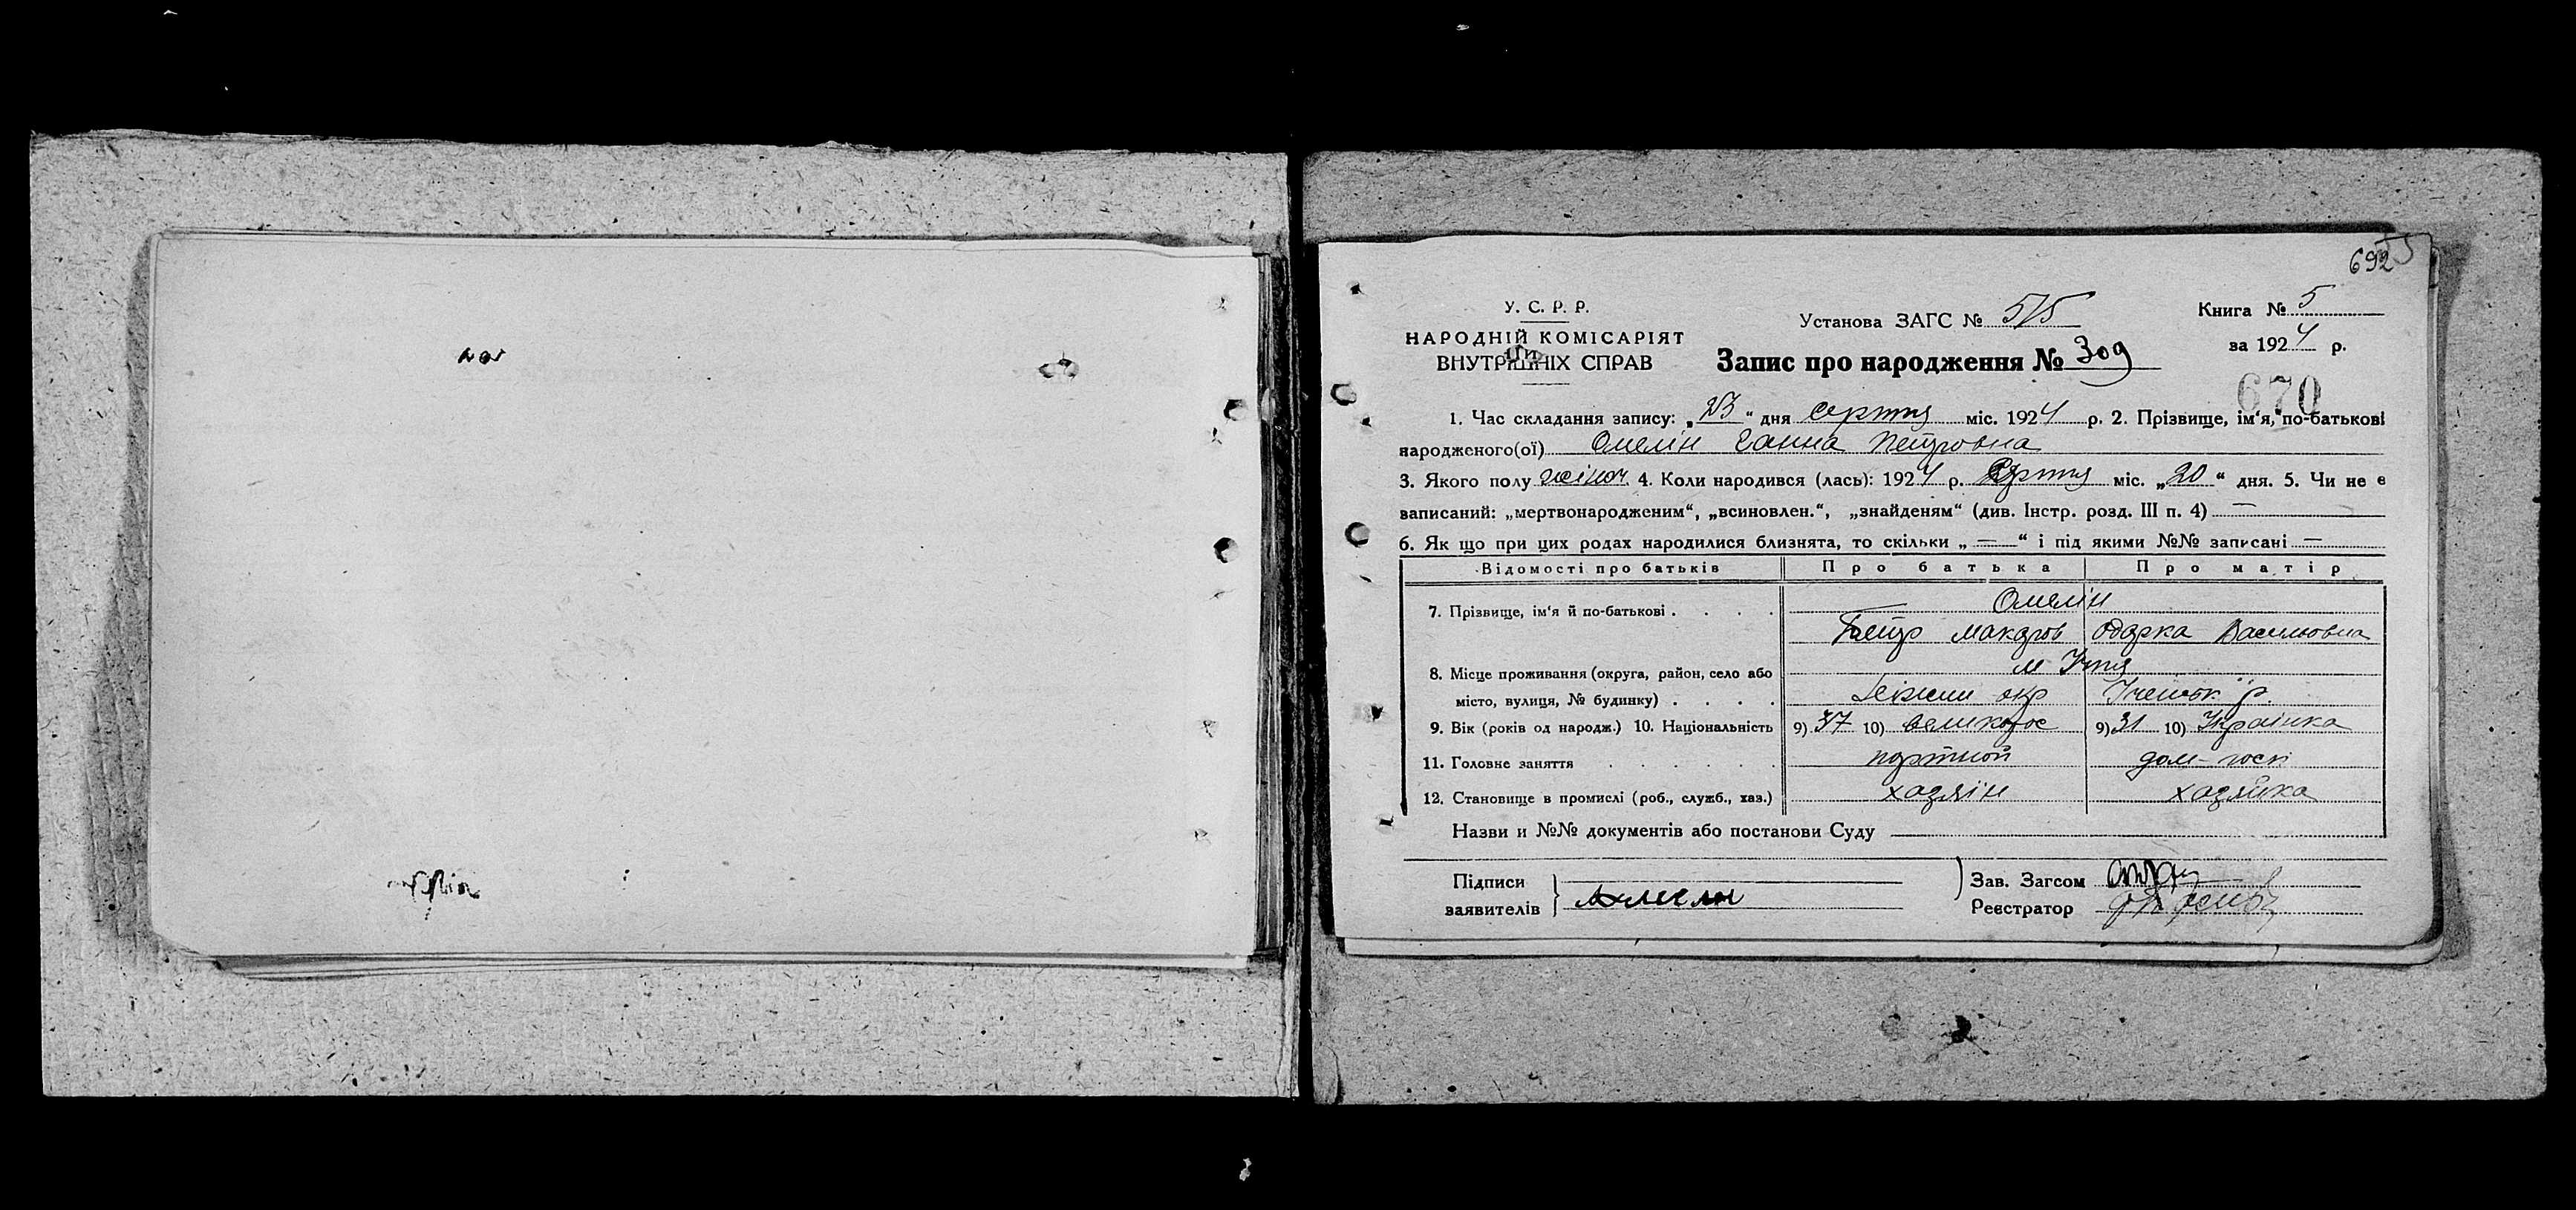 692
У. С. Р. Р.
НАРОДНІЙ КОМІСАРІЯТ
ВНУТРІШНІХ СПРАВ
Установа ЗАГС № 515
Книга № 5
за 1924 р.
Запис про народження № 309
670
1. Час складання запису: „23“ дня серпня міс. 1924 р. 2. Прізвище, ім'я, по-батькові
народженого(ої) Омелін Ганна Петровна
3. Якого полу жіноч 4. Коли народився (лась): 1924 р. Серпня міс. „20“ дня. 5. Чи не є
записаний: „мертвонародженим“, „всиновлен.“, „знайденям“ (див. Інстр. розд. III п. 4) —
6. Як що при цих родах народилися близнята, то скільки „—“ і під якими №№ записані —
Відомості про батьків Про батька Про матір
7. Прізвище, ім'я й по-батькові . . . . Омелін
Петр Макаров Одарка Василювна
8. Місце проживання (округа, район, село або м Ічня
місто, вулиця, № будинку) . . . . Ніжин окр Іченськ р.
9. Вік (років од народж.) 10. Національність 9) 37 10) великорос 9) 31 10) Українка
11. Головне заняття . . . . . . портной дом-госп
12. Становище в промислі (роб., служб., хаз.) хазяїн хазяйка
Назви и №№ документів або постанови Суду
Підписи
заявителів
Зав. Загсом
Реєстратор